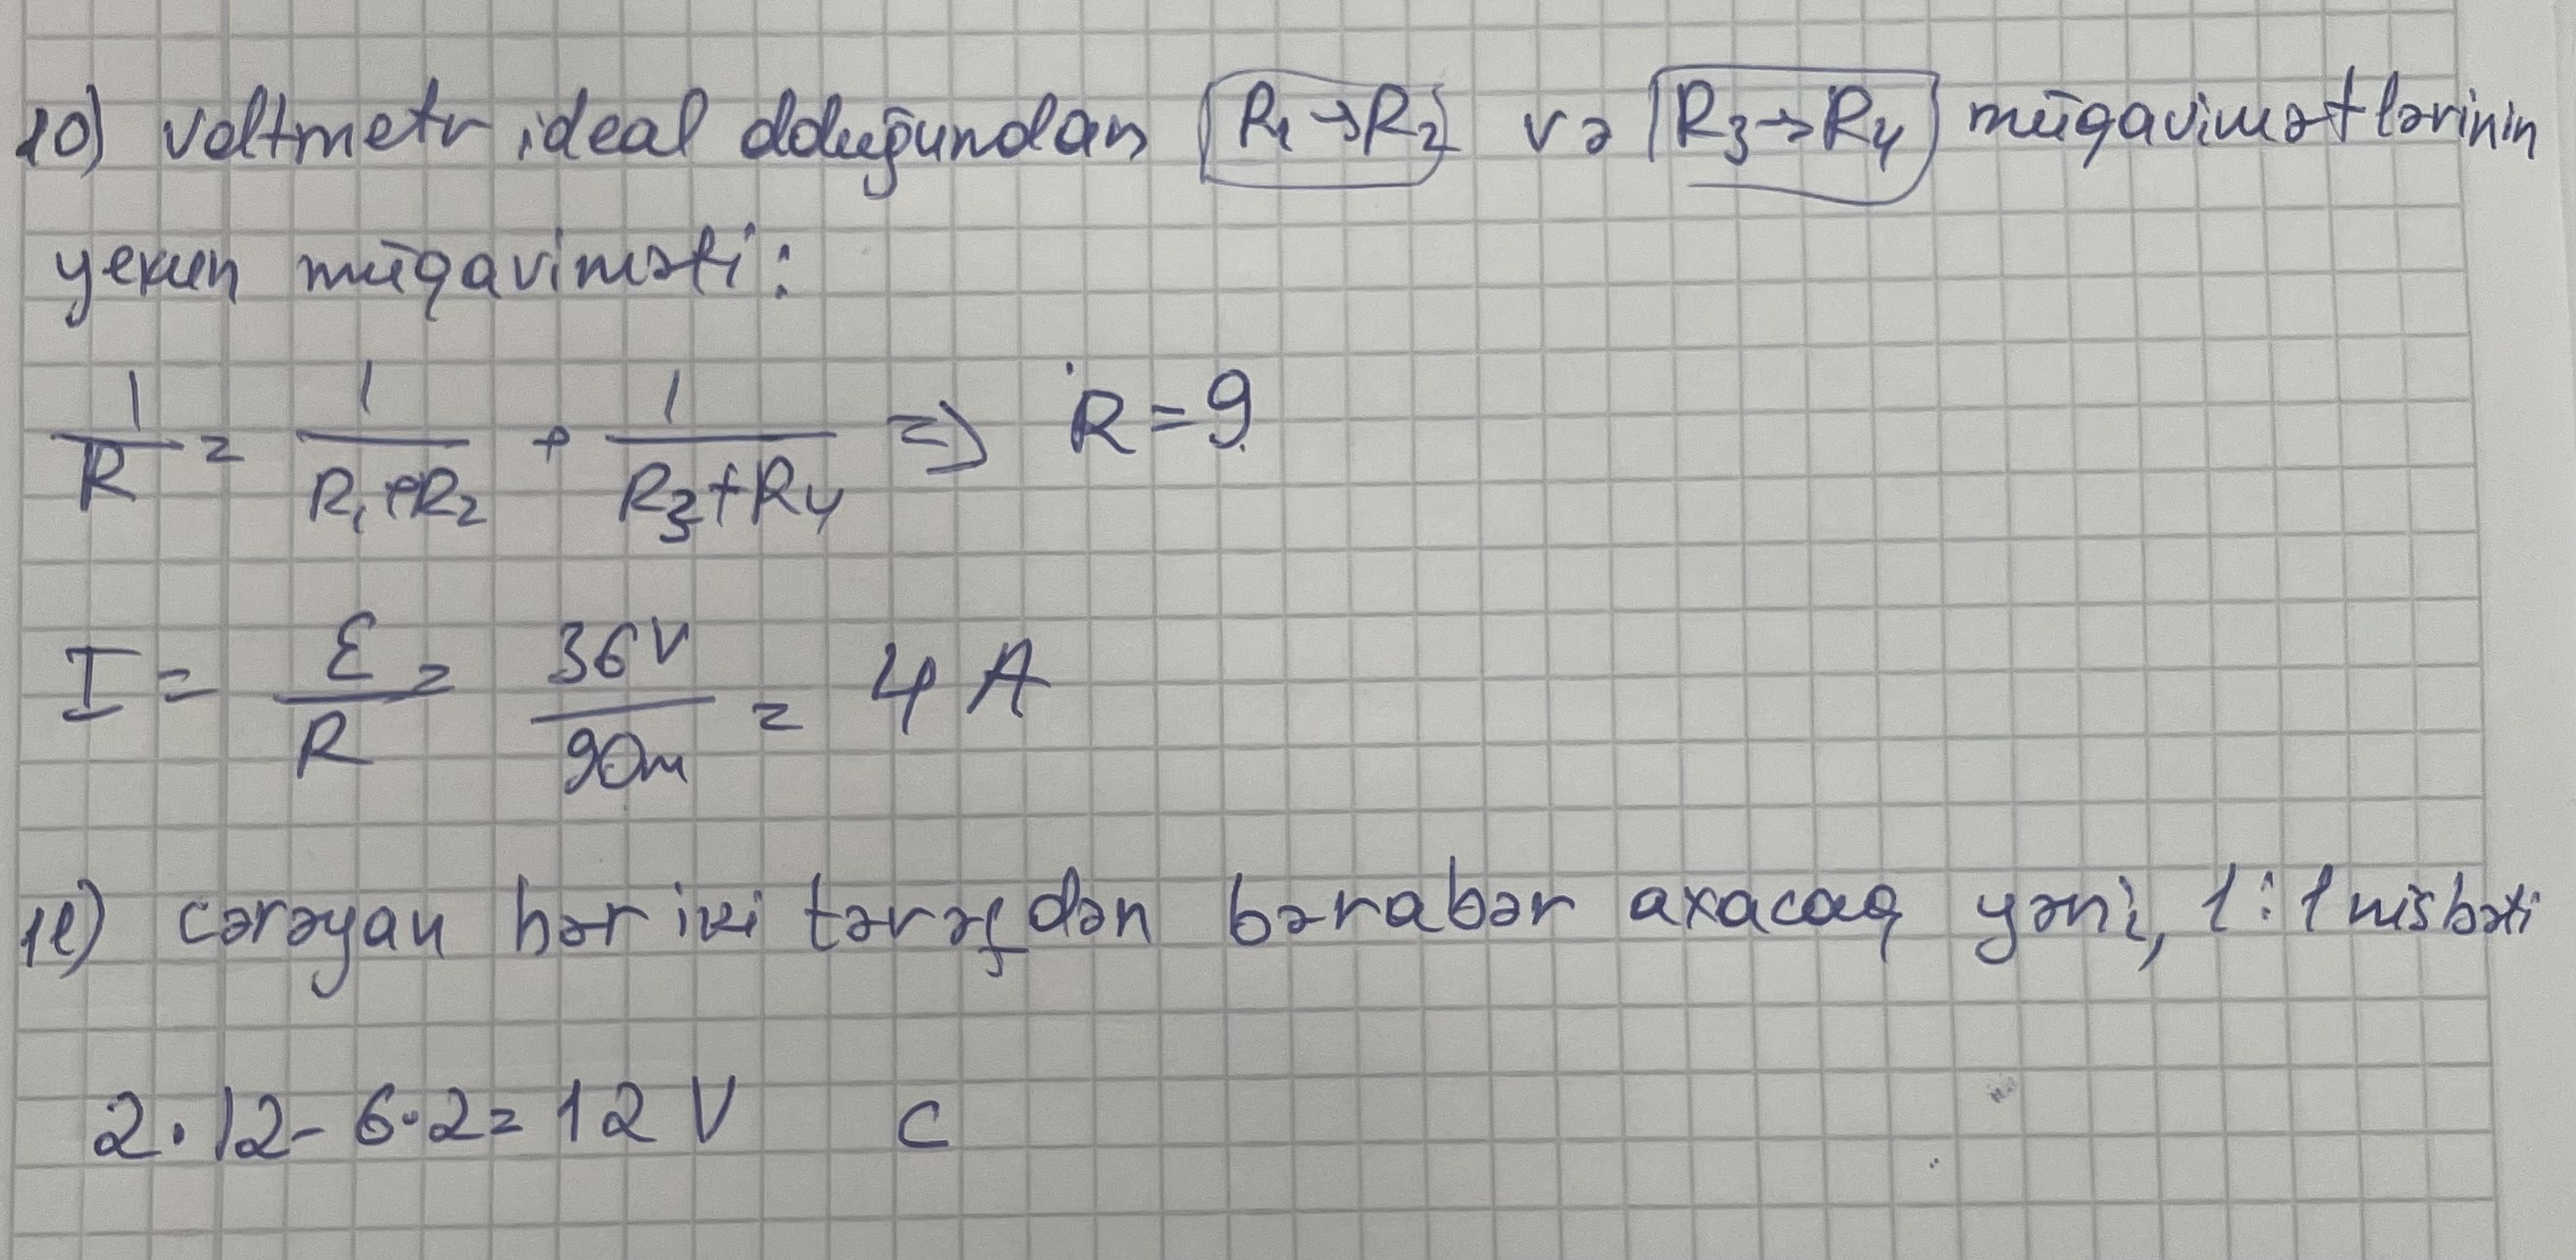 10) voltmetr ideal olduğundan R₁→R₂ və R₃→R₄ müqavimətlərinin
yekun müqaviməti:
1/R = 1/(R₁+R₂) + 1/(R₃+R₄) => R=9
I = ℰ/R = 36V/9Om = 4 A
11) cərəyan hər iki tərəfdən bərabər axacaq yəni, 1:1 nisbəti
2·12-6·2=12 V C